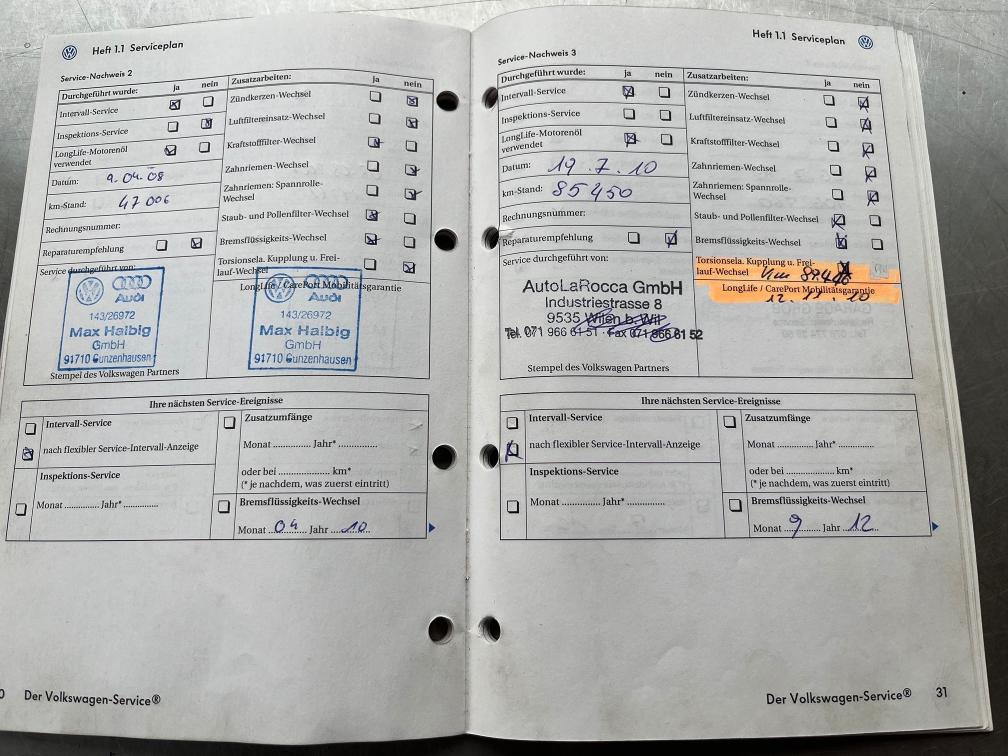 Heft 1.1 Serviceplan
Service-Nachweis 2
Durchgeführt wurde: ja nein
Intervall-Service
Inspektions-Service
LongLife-Motorenöl
verwendet
Datum: 9.04.08
km-Stand: 47006
Rechnungsnummer:
Reparaturempfehlung
Service durchgeführt von:
Audi
143/26972
Max Halbig
GmbH
91710 Gunzenhausen
Stempel des Volkswagen Partners
Zusatzarbeiten: ja nein
Zündkerzen-Wechsel
Luftfiltereinsatz-Wechsel
Kraftstofffilter-Wechsel
Zahnriemen-Wechsel
Zahnriemen: Spannrolle-
Wechsel
Staub- und Pollenfilter-Wechsel
Bremsflüssigkeits-Wechsel
Torsionsela. Kupplung u. Frei-
lauf-Wechsel
LongLife / CarePort Mobilitätsgarantie
Audi
143/26972
Max Halbig
GmbH
91710 Gunzenhausen
Ihre nächsten Service-Ereignisse
Intervall-Service
nach flexibler Service-Intervall-Anzeige
Inspektions-Service
Monat .............. Jahr* ..............
Zusatzumfänge
Monat .............. Jahr* ..............
oder bei .................. km*
(* je nachdem, was zuerst eintritt)
Bremsflüssigkeits-Wechsel
Monat 04 Jahr 10
Der Volkswagen-Service®
Heft 1.1 Serviceplan
Service-Nachweis 3
Durchgeführt wurde: ja nein
Intervall-Service
Inspektions-Service
LongLife-Motorenöl
verwendet
Datum: 19.7.10
km-Stand: 85450
Rechnungsnummer:
Reparaturempfehlung
Service durchgeführt von:
AutoLaRocca GmbH
Industriestrasse 8
9535 Wilen b. Wil
Tel. 071 966 61 51 · Fax 071 966 61 52
Stempel des Volkswagen Partners
Zusatzarbeiten: ja nein
Zündkerzen-Wechsel
Luftfiltereinsatz-Wechsel
Kraftstofffilter-Wechsel
Zahnriemen-Wechsel
Zahnriemen: Spannrolle-
Wechsel
Staub- und Pollenfilter-Wechsel
Bremsflüssigkeits-Wechsel
Torsionsela. Kupplung u. Frei-
lauf-Wechsel Km
LongLife / CarePort Mobilitätsgarantie
12.11.10
Ihre nächsten Service-Ereignisse
Intervall-Service
nach flexibler Service-Intervall-Anzeige
Inspektions-Service
Monat .............. Jahr* ..............
Zusatzumfänge
Monat .............. Jahr* ..............
oder bei .................. km*
(* je nachdem, was zuerst eintritt)
Bremsflüssigkeits-Wechsel
Monat 9 Jahr 12
Der Volkswagen-Service® 31